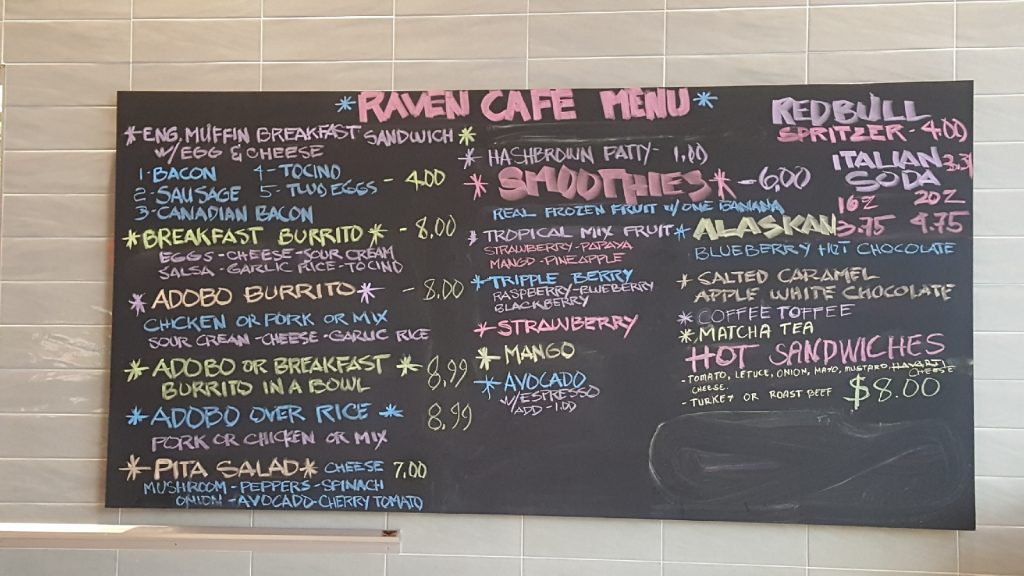 *RAVEN CAFE MENU*
*ENG. MUFFIN BREAKFAST SANDWICH*
W/EGG & CHEESE
1-BACON 4-TOCINO
2-SAUSAGE 5-TWO EGGS - 4.00
3-CANADIAN BACON
*BREAKFAST BURRITO* - 8.00
EGGS-CHEESE-SOUR CREAM
SALSA-GARLIC RICE-TOCINO
*ADOBO BURRITO* - 8.00
CHICKEN OR PORK OR MIX
SOUR CREAM-CHEESE-GARLIC RICE
*ADOBO OR BREAKFAST* 8.99
BURRITO IN A BOWL
*ADOBO OVER RICE* 8.99
PORK OR CHICKEN OR MIX
*PITA SALAD* CHEESE 7.00
MUSHROOM-PEPPERS-SPINACH
ONION-AVOCADO-CHERRY TOMATO
*HASHBROWN PATTY- 1.00
*SMOOTHIES* -6.00
REAL FROZEN FRUIT W/ ONE BANANA
*TROPICAL MIX FRUIT
STRAWBERRY-PAPAYA
MANGO-PINEAPPLE
*TRIPPLE BERRY
RASPBERRY-BLUEBERRY
BLACKBERRY
*STRAWBERRY
*MANGO
*AVOCADO
W/ESPRESSO
ADD-1.00
REDBULL
SPRITZER-4.00
ITALIAN
SODA
16Z 20Z
*ALASKAN 3.75 4.75
BLUEBERRY HOT CHOCOLATE
*SALTED CARAMEL
APPLE WHITE CHOCOLATE
*COFFEE TOFFEE
*MATCHA TEA
HOT SANDWICHES
-TOMATO, LETUCE, ONION, MAYO, MUSTARD, HAVARTI CHEESE
CHEESE.
-TURKEY OR ROAST BEEF $8.00